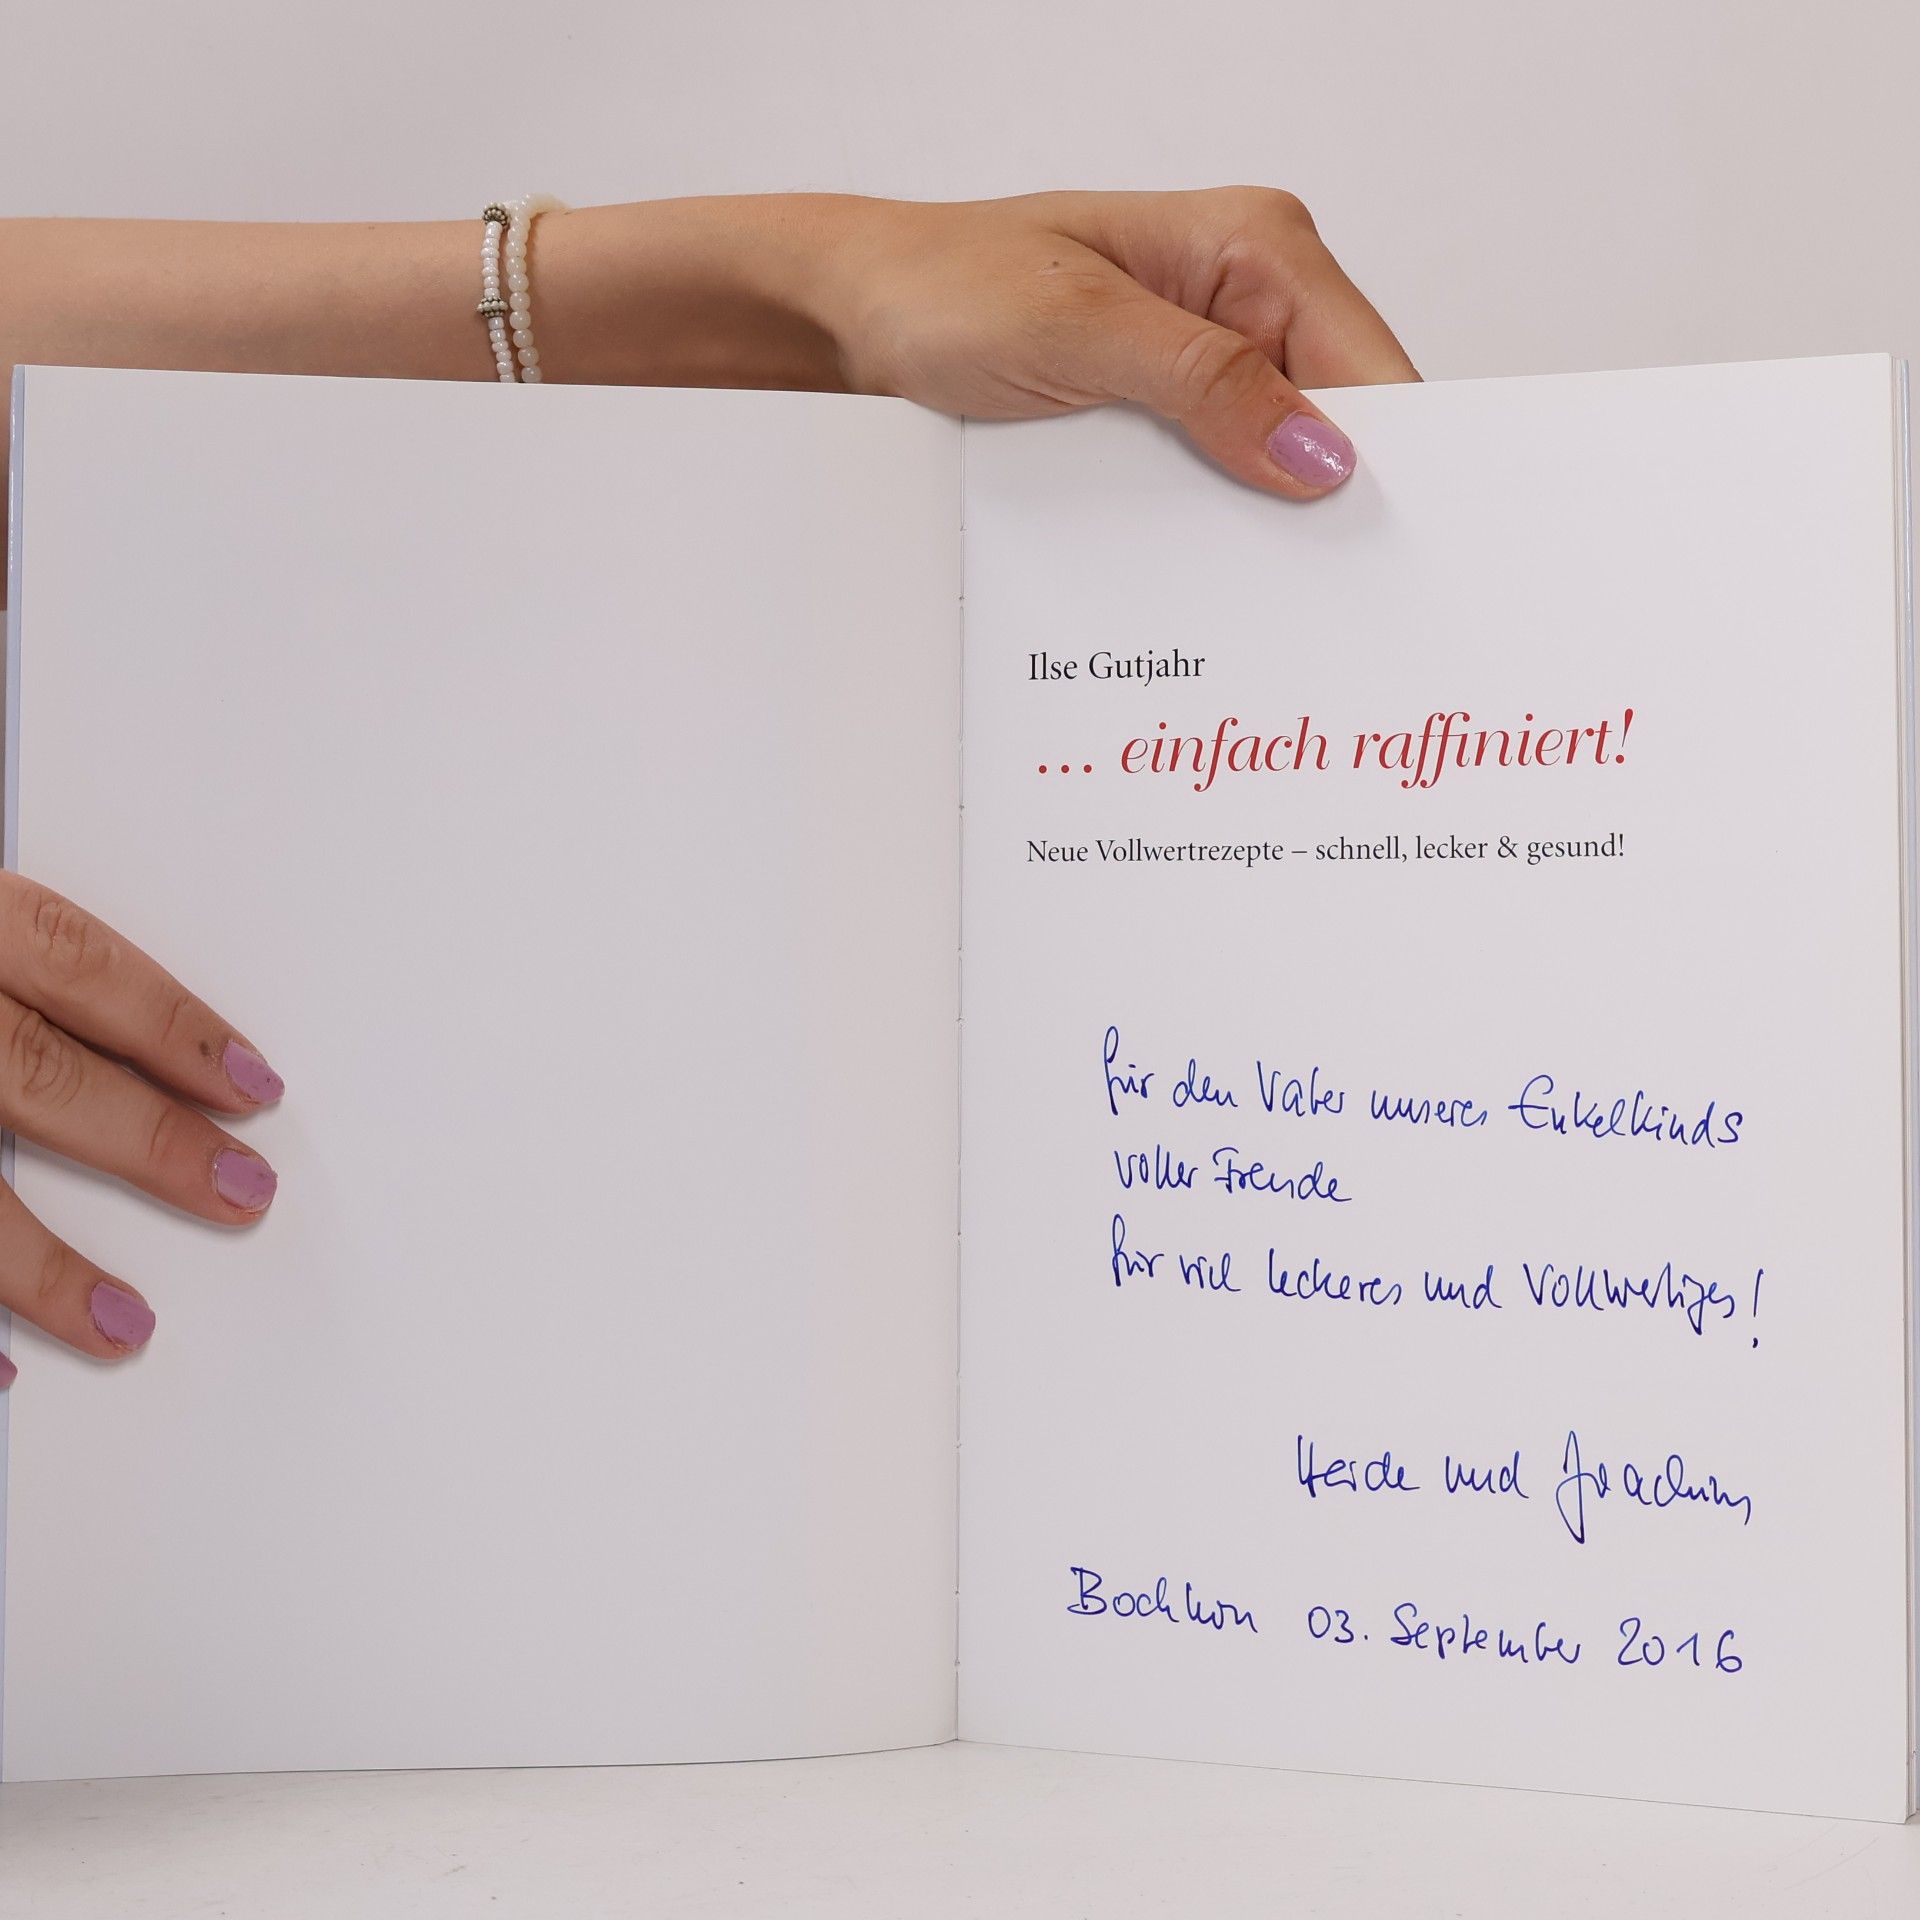 Ilse Gutjahr
... einfach raffiniert!
Neue Vollwertrezepte – schnell, lecker & gesund!
für den Vater unseres Enkelkinds
voller Freude
für viel leckeres und Vollwertiges!
Heide und Joachim
03. September 2016